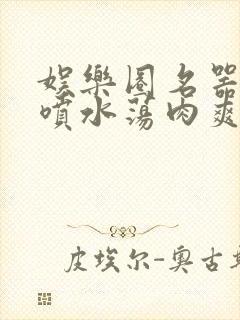 娛樂圈名器
噴水蕩肉爽
皮埃尔-奥古